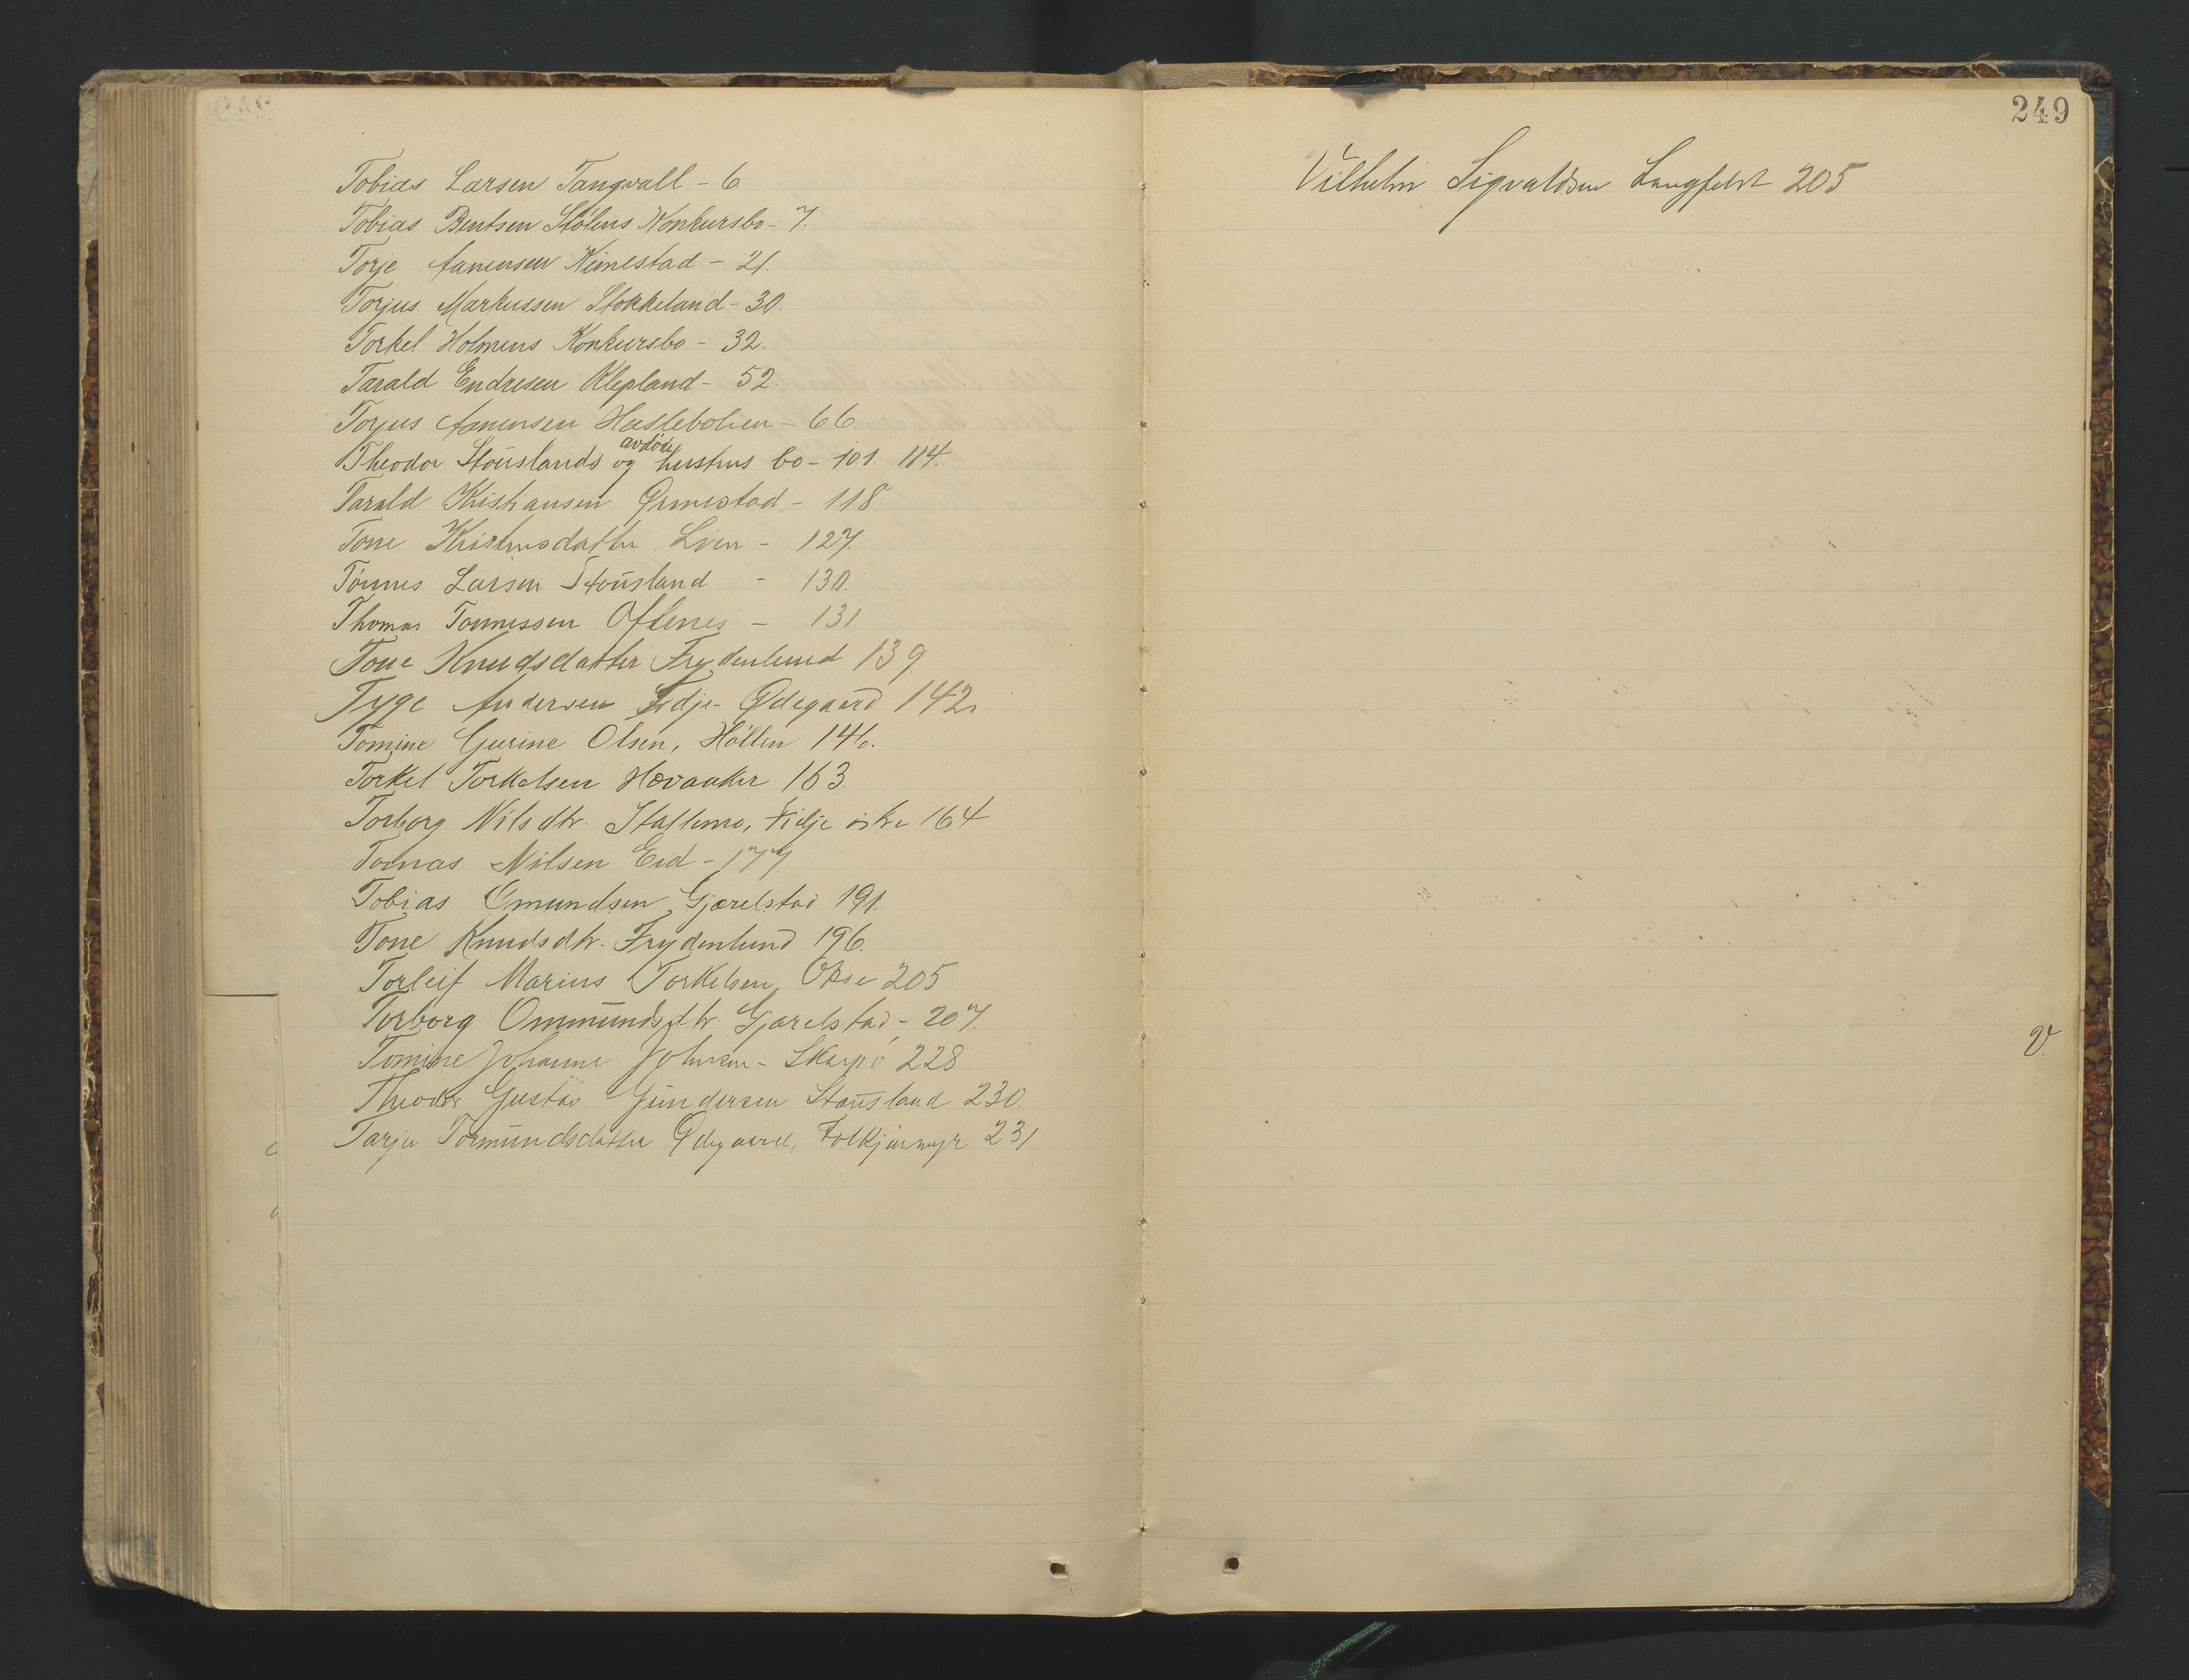 Tobias Larsen Tangvall - 6
Tobias Bentsen Stølens Konkursbo - 7.
Torje Aanensen Kimestad - 21.
Torjus Markussen Stokkeland - 30.
Torkel Holmens Konkursbo - 32.
Tarald Endresen Klepland - 52.
Torjus Aanensen - 66.
Theodor Stouslands og avdøde hustrus bo - 101. 114.
Tarald Kristiansen Ormestad - 118.
Tone Kristensdatter Lien - 127.
Tønnes Larsen Stousland - 130.
Thomas Tønnessen Oftenes - 131.
Tone Knudsdatter Frydenlund 139.
Tyge Andersen Fidje - Ødegaard 142
Tomine Gurine Olsen, Høllen 146.
Torkel Torkelsen Hovaaker 163.
Torborg Nilsdtr. Stallemo, Fidje østre 164
Tomas Nilsen Eid - 177.
Tobias Omundsen Gjærelstad 191.
Tone Knudsdtr. Frydenlund 196.
Torleif Marius Torkelsen, Okse 205
Torborg Ommundsdtr. Gjærelstad - 207.
Tomine Johanne Johnsen - Skarpø 228
Theodor Gustav Gundersen Stausland 230.
Tarje Tormundsdatter Ødegaard, 231
249
Vilhelm Sigvaldsen Langfeldt 205
V.